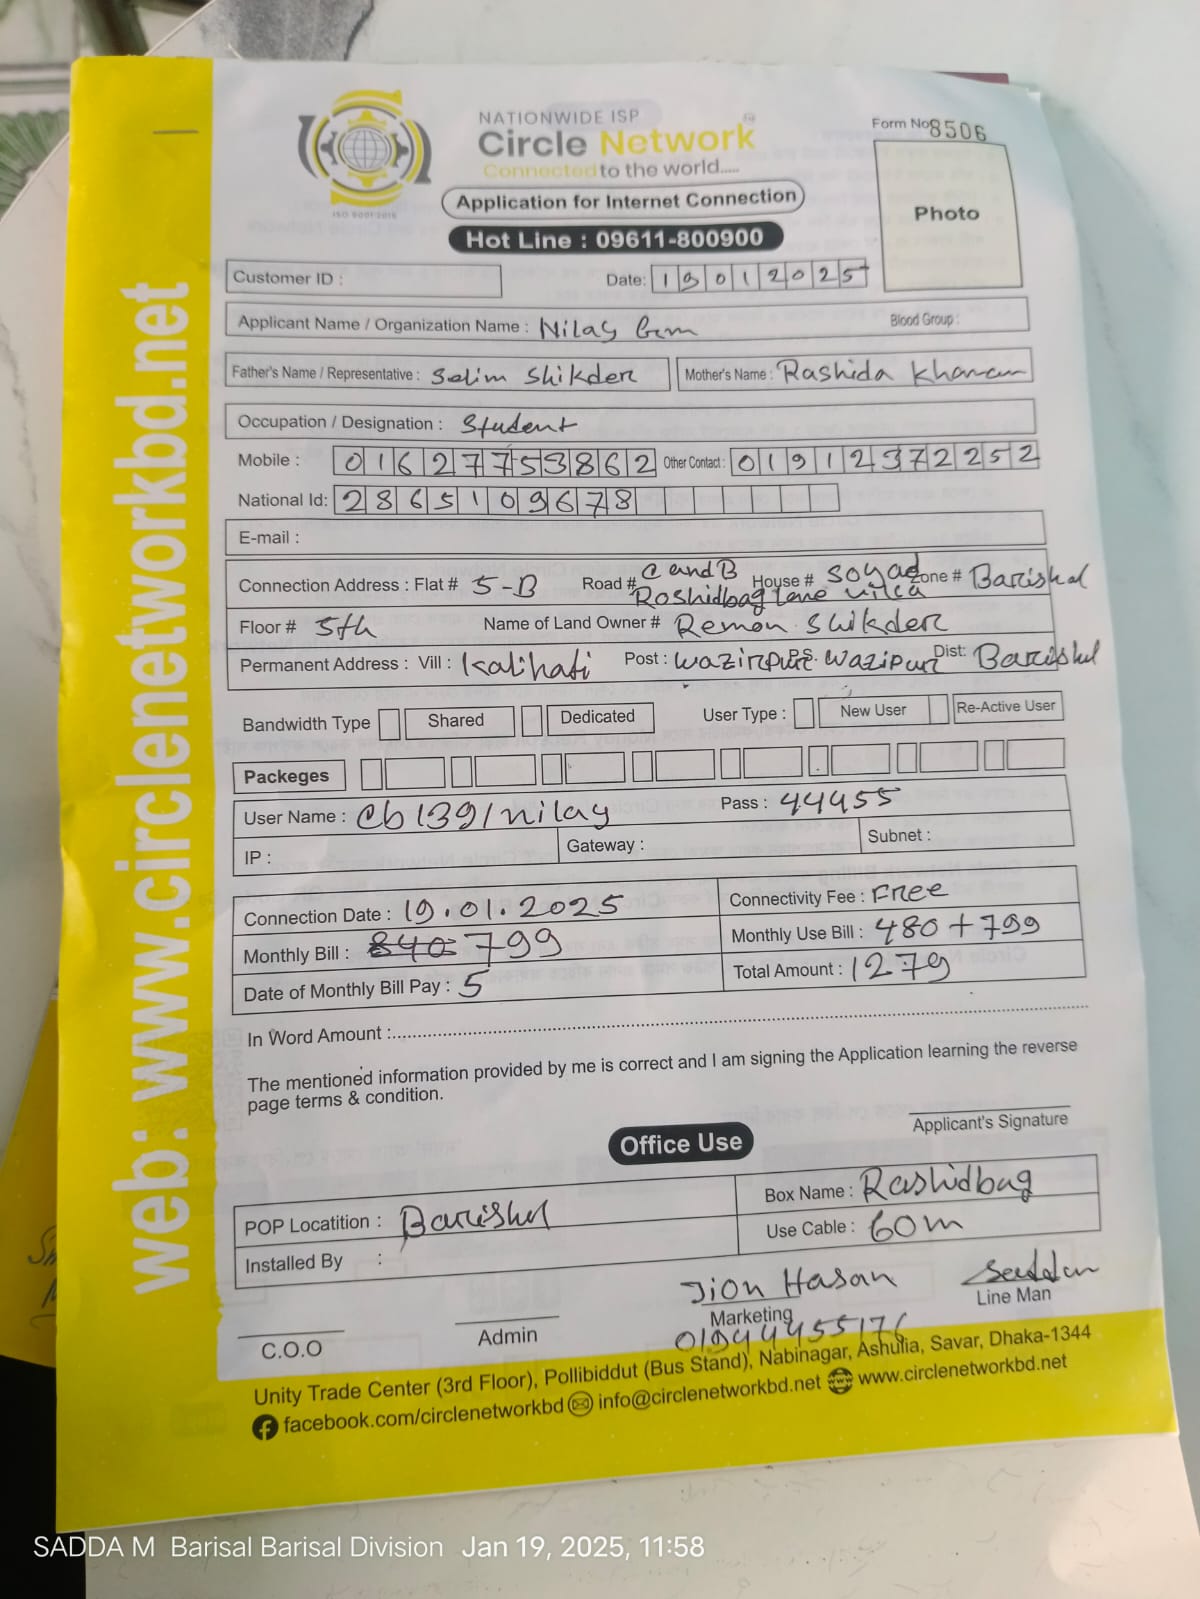 web: www.circlenetworkbd.net
ISO 9001:2015
NATIONWIDE ISP
Circle Network
Connected to the world.....
Application for Internet Connection
Hot Line : 09611-800900
Form No 8506
Photo
Customer ID :
Date: 19012025
Applicant Name / Organization Name : Nilay
Blood Group :
Father's Name / Representative : Selim Shikder
Mother's Name : Rashida Khanam
Occupation / Designation : Student
Mobile : 01627753862 Other Contact : 01912372252
National Id: 2865109678
E-mail :
Connection Address : Flat # 5-B Road # C and B Roshidbag lane House # Soyad Zone # Barishal
Floor # 5th Name of Land Owner # Remon Shikder
Permanent Address : Vill : Kalihati Post : Wazirpur P.S. Wazipur Dist: Barishal
Bandwidth Type Shared Dedicated User Type : New User Re-Active User
Packeges
User Name : cb1391nilay Pass : 44455
IP : Gateway : Subnet :
Connection Date : 19.01.2025 Connectivity Fee : Free
Monthly Bill : 840 799 Monthly Use Bill : 480 + 799
Date of Monthly Bill Pay : 5 Total Amount : 1279
In Word Amount :
The mentioned information provided by me is correct and I am signing the Application learning the reverse
page terms & condition.
Applicant's Signature
Office Use
POP Locatition : Barishal Box Name : Rashidbag
Installed By : Use Cable : 60m
Jion Hasan
C.O.O Admin Marketing Line Man
Unity Trade Center (3rd Floor), Pollibiddut (Bus Stand), Nabinagar, Ashulia, Savar, Dhaka-1344
facebook.com/circlenetworkbd info@circlenetworkbd.net www.circlenetworkbd.net
SADDA M Barisal Barisal Division Jan 19, 2025, 11:58